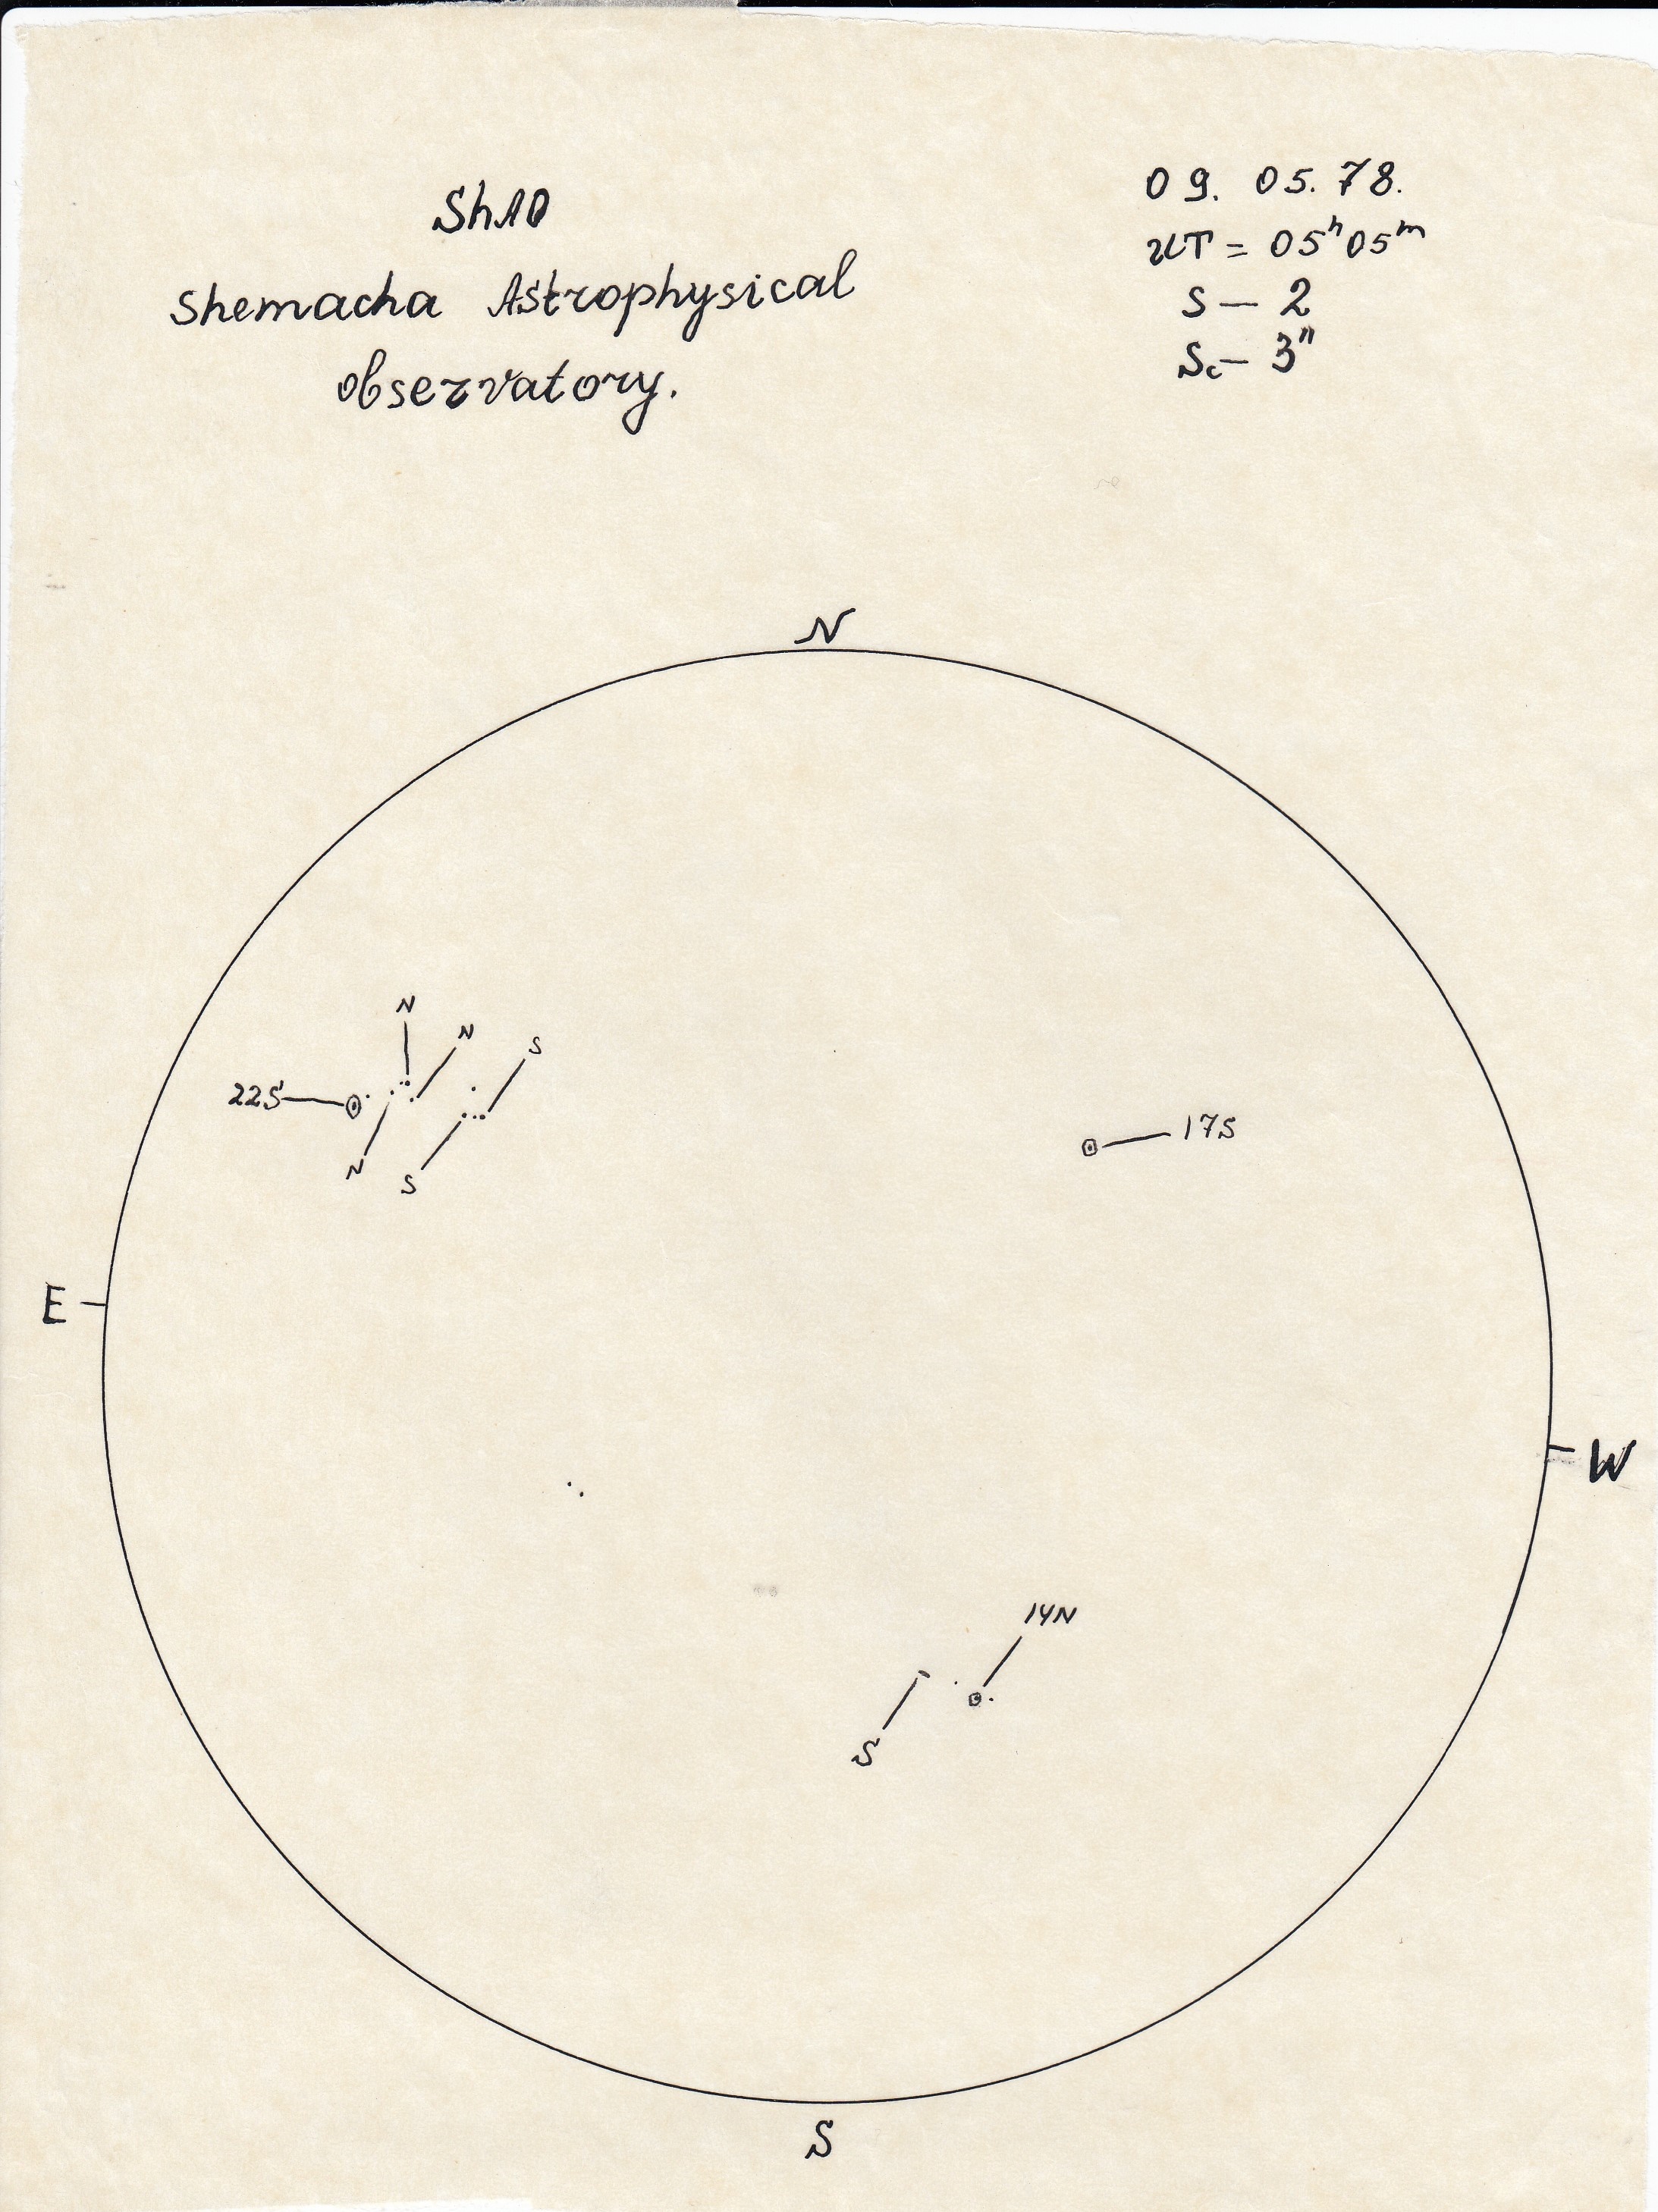 ShAO
Shemacha Astrophysical
observatory.
09. 05. 78.
UT = 05h05m
S — 2
Sc — 3"
N
N
N
S
22S
17S
N
S
E
W
14N
S
S